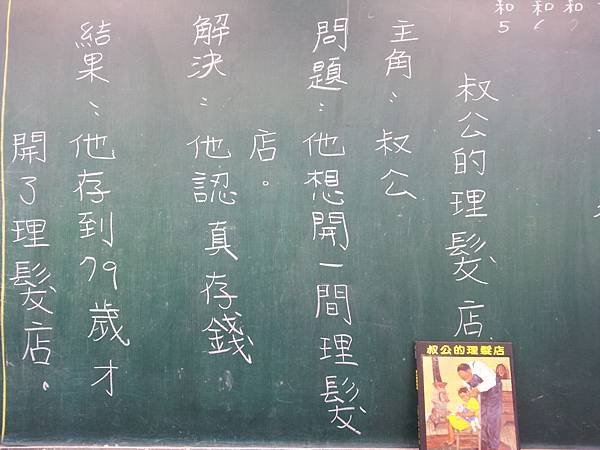 和 和 和
5 6 7
叔公的理髮店
主角：叔公
問題：他想開一間理髮
店。
解決：他認真存錢
結果：他存到79歲才
開了理髮店。
叔公的理髮店